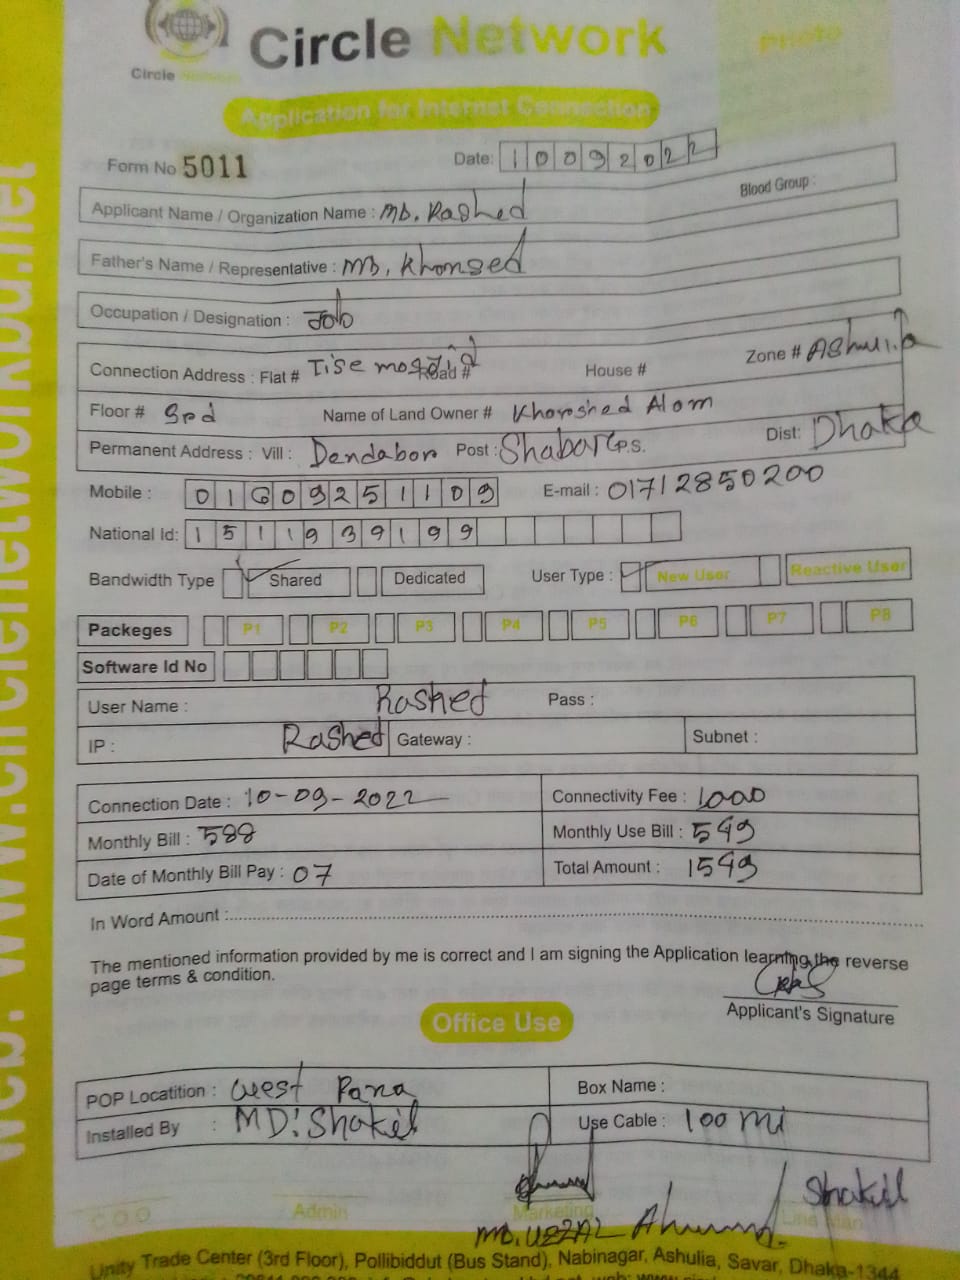 Circle Network
Circle Network
PHOTO
Application for Internet Connection
Form No 5011
Date: 10092022
Blood Group :
Applicant Name / Organization Name : MD. Rashed
Father's Name / Representative : MD, Khorsed
Occupation / Designation : Job
Connection Address : Flat # Road # House # Zone # AShulia
Floor # 3rd Name of Land Owner # Khorshed Alom
Permanent Address : Vill : Dendabor Post : Shabar P.S. Dist: Dhaka
Mobile : 01609251109 E-mail : 01712850200
National Id: 1511939199
Bandwidth Type Shared Dedicated User Type : New User Reactive User
Packeges P1 P2 P3 P4 P5 P6 P7 P8
Software Id No
User Name : Rashed Pass :
IP : Rashed Gateway : Subnet :
Connection Date : 10-09-2022 Connectivity Fee : 1000
Monthly Bill : Monthly Use Bill : 549
Date of Monthly Bill Pay : 07 Total Amount : 1549
In Word Amount :
The mentioned information provided by me is correct and I am signing the Application learning the reverse
page terms & condition.
Applicant's Signature
Office Use
POP Locatition : West Para Box Name :
Installed By : MD: Shakil Use Cable : 100 mi
Shakil
C O O Admin Marketing Line Man
Unity Trade Center (3rd Floor), Pollibiddut (Bus Stand), Nabinagar, Ashulia, Savar, Dhaka-1344
web: www.circlenetworkbd.net